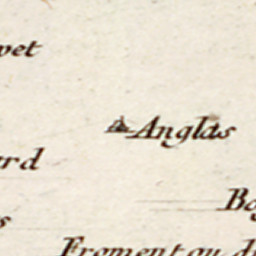 vet
Anglas
ard
Ba
s
Froment ou d